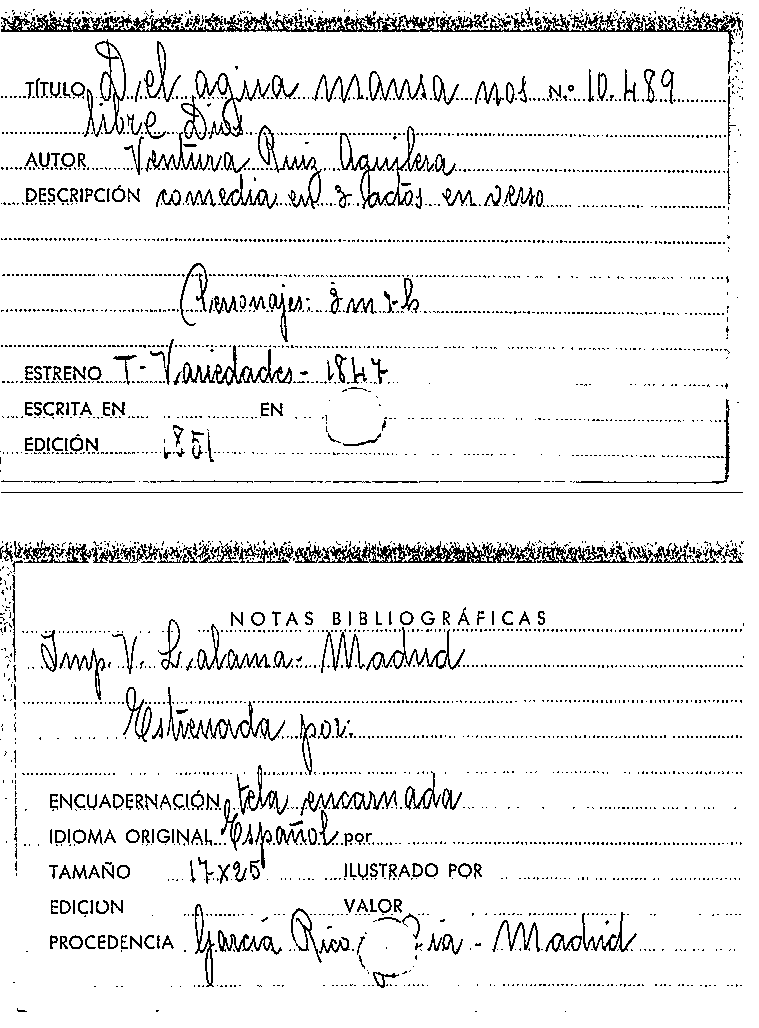 TÍTULO Del agua mansa nos N.º 10.489
libre Dios
AUTOR Ventura Ruiz Aguilera
DESCRIPCIÓN comedia en 3 actos en verso
Personajes: 3 m 7 h
ESTRENO T- Variedades - 1847
ESCRITA EN EN
EDICIÓN 1851
NOTAS BIBLIOGRÁFICAS
Imp. V. Lalama - Madrid
Estrenada por:
ENCUADERNACIÓN tela encarnada
IDIOMA ORIGINAL Español por
TAMAÑO 17x25 ILUSTRADO POR
EDICION VALOR
PROCEDENCIA García Rico - Madrid